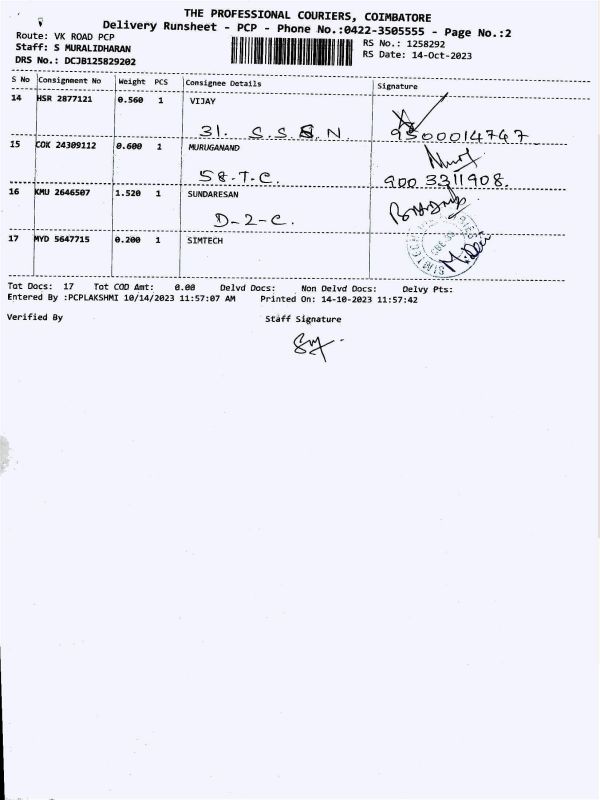 THE PROFESSIONAL COURIERS, COIMBATORE
Delivery Runsheet - PCP - Phone No.:0422-3505555 - Page No.:2
Route: VK ROAD PCP
RS No.: 1258292
Staff: S MURALIDHARAN
RS Date: 14-Oct-2023
DRS No.: DCJB125829202
S No Consignment No Weight PCS Consignee Details Signature
14 HSR 2877121 0.560 1 VIJAY
31. S.S.B.N. 9500014747
15 COK 24309112 0.600 1 MURUGANAND
58.T.C. 9003311908.
16 KMU 2646507 1.520 1 SUNDARESAN
D-2-C.
17 MYD 5647715 0.200 1 SIMTECH
M.Devi
Tot Docs: 17 Tot COD Amt: 0.00 Delvd Docs: Non Delvd Docs: Delvy Pts:
Entered By :PCPLAKSHMI 10/14/2023 11:57:07 AM Printed On: 14-10-2023 11:57:42
Verified By Staff Signature